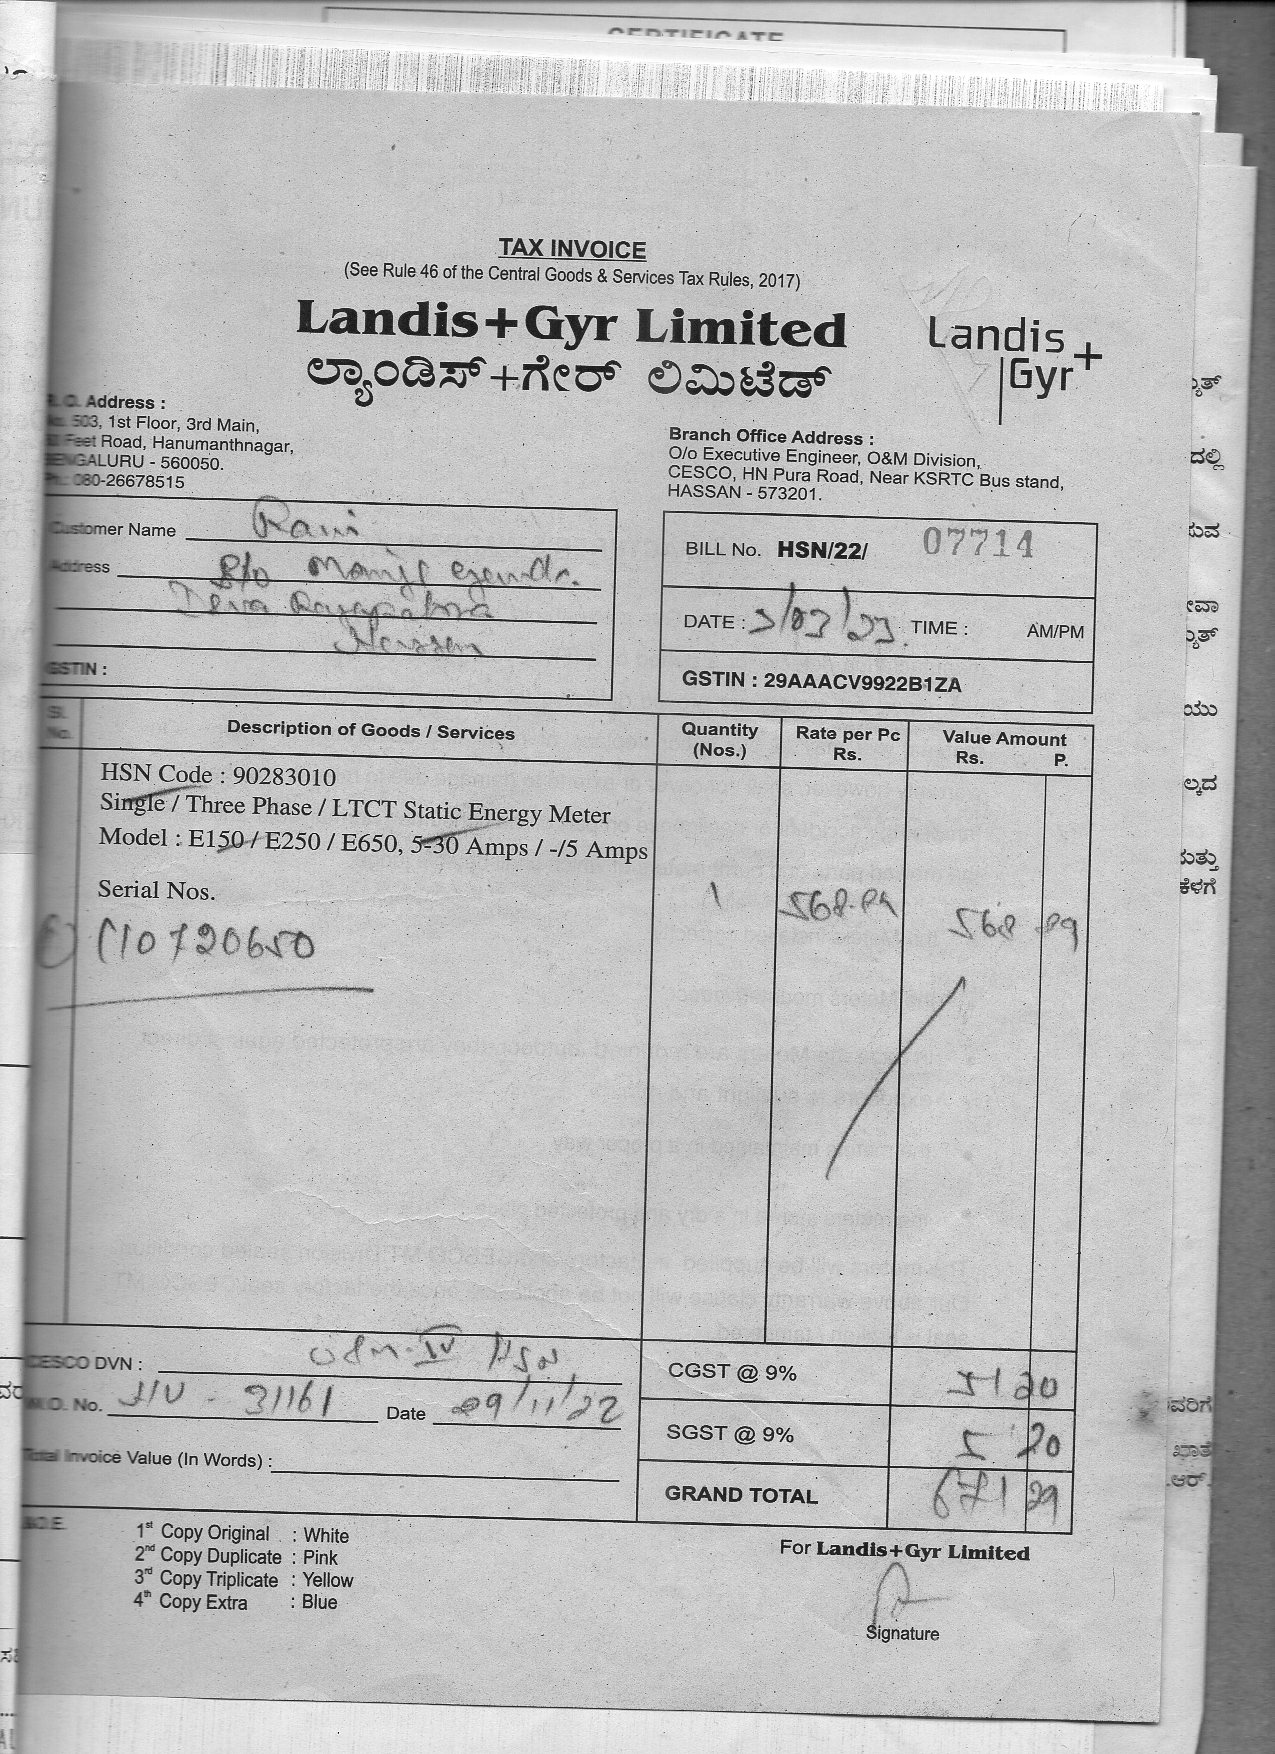 CERTIFICATE
TAX INVOICE
(See Rule 46 of the Central Goods & Services Tax Rules, 2017)
Landis+Gyr Limited
ಲ್ಯಾಂಡಿಸ್+ಗೇರ್ ಲಿಮಿಟೆಡ್
Landis+
Gyr
Address :
503, 1st Floor, 3rd Main,
Feet Road, Hanumanthnagar,
BENGALURU - 560050.
080-26678515
Branch Office Address :
O/o Executive Engineer, O&M Division,
CESCO, HN Pura Road, Near KSRTC Bus stand,
HASSAN - 573201.
Customer Name Ravi
Address S/o
GSTIN :
BILL No. HSN/22/ 07714
DATE : 3/03/23. TIME : AM/PM
GSTIN : 29AAACV9922B1ZA
Sl. No. Description of Goods / Services Quantity (Nos.) Rate per Pc Rs. Value Amount Rs. P.
HSN Code : 90283010
Single / Three Phase / LTCT Static Energy Meter
Model : E150 / E250 / E650, 5-30 Amps / -/5 Amps
Serial Nos. 1 568.09 568 09
110720650
CESCO DVN : IV HSN
W.O. No. 31161 Date 09/11/22
Total Invoice Value (In Words) :
CGST @ 9% 51 20
SGST @ 9% 20
GRAND TOTAL 671 29
1st Copy Original : White
2nd Copy Duplicate : Pink
3rd Copy Triplicate : Yellow
4th Copy Extra : Blue
For Landis+Gyr Limited
Signature